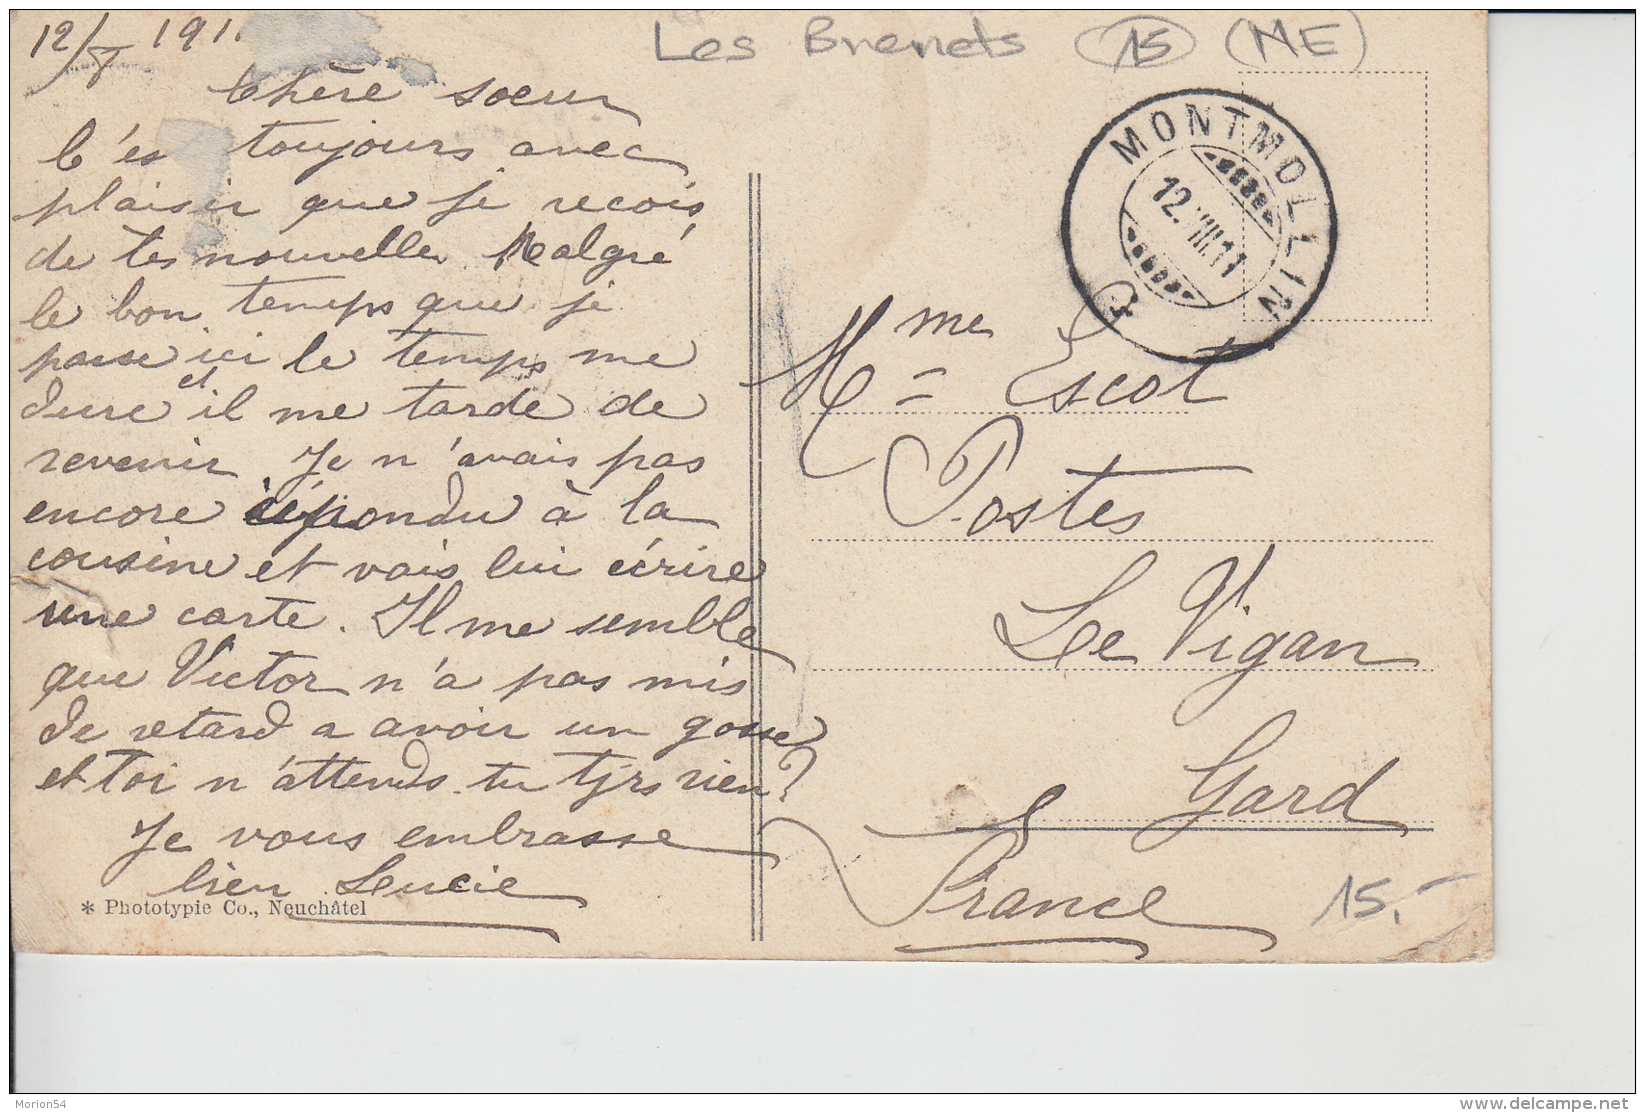 12/8 191
Les Brenets 15 (NE)
Chère soeur
C'es toujours avec
plaisir que je recois
de tes nouvelles Malgré
le bon temps que je
passe ici le temps me
dure et il me tarde de
revenir Je n'avais pas
encore répondu à la
cousine et vais lui écrire
une carte. Il me semble
que Victor n'a pas mis
de retard a avoir un gosse
et toi n'attends-tu tjrs rien?
Je vous embrasse
bien Lucie
* Phototypie Co., Neuchâtel
MONTMOLLIN
12.VIII.11
Mme Escot
Postes
Le Vigan
Gard
France
15.-
Morion54
www.delcampe.net